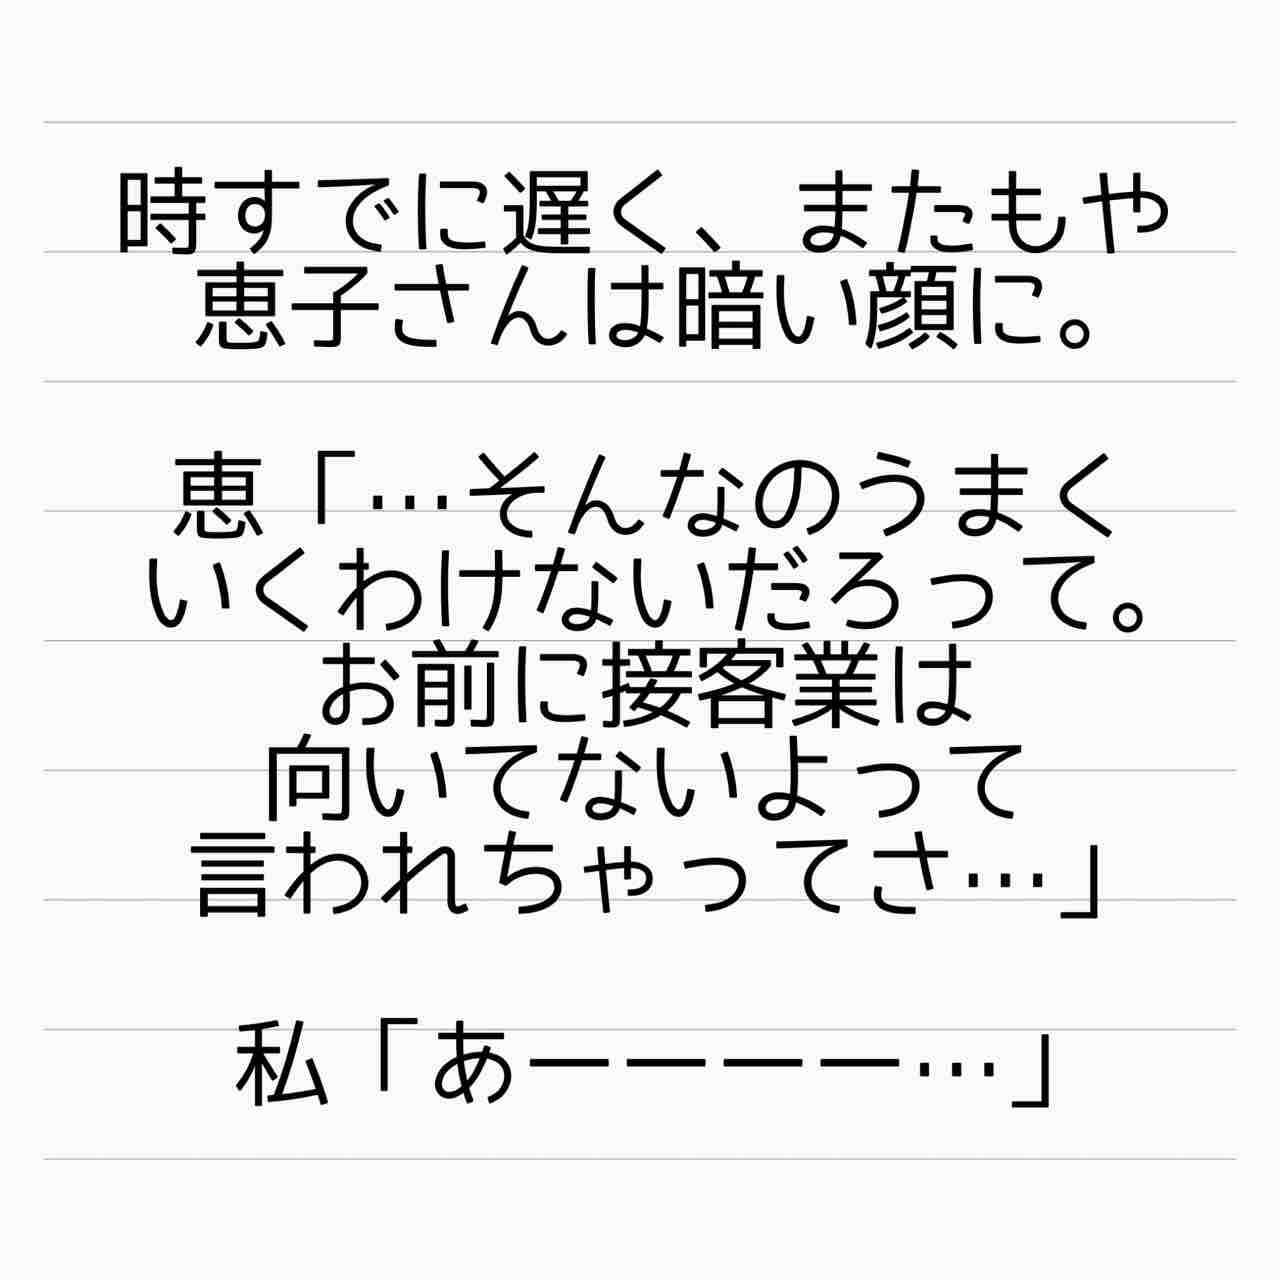 時すでに遅く、またもや
恵子さんは暗い顔に。
恵「…そんなのうまく
いくわけないだろって。
お前に接客業は
向いてないよって
言われちゃってさ…」
私「あーーーー…」